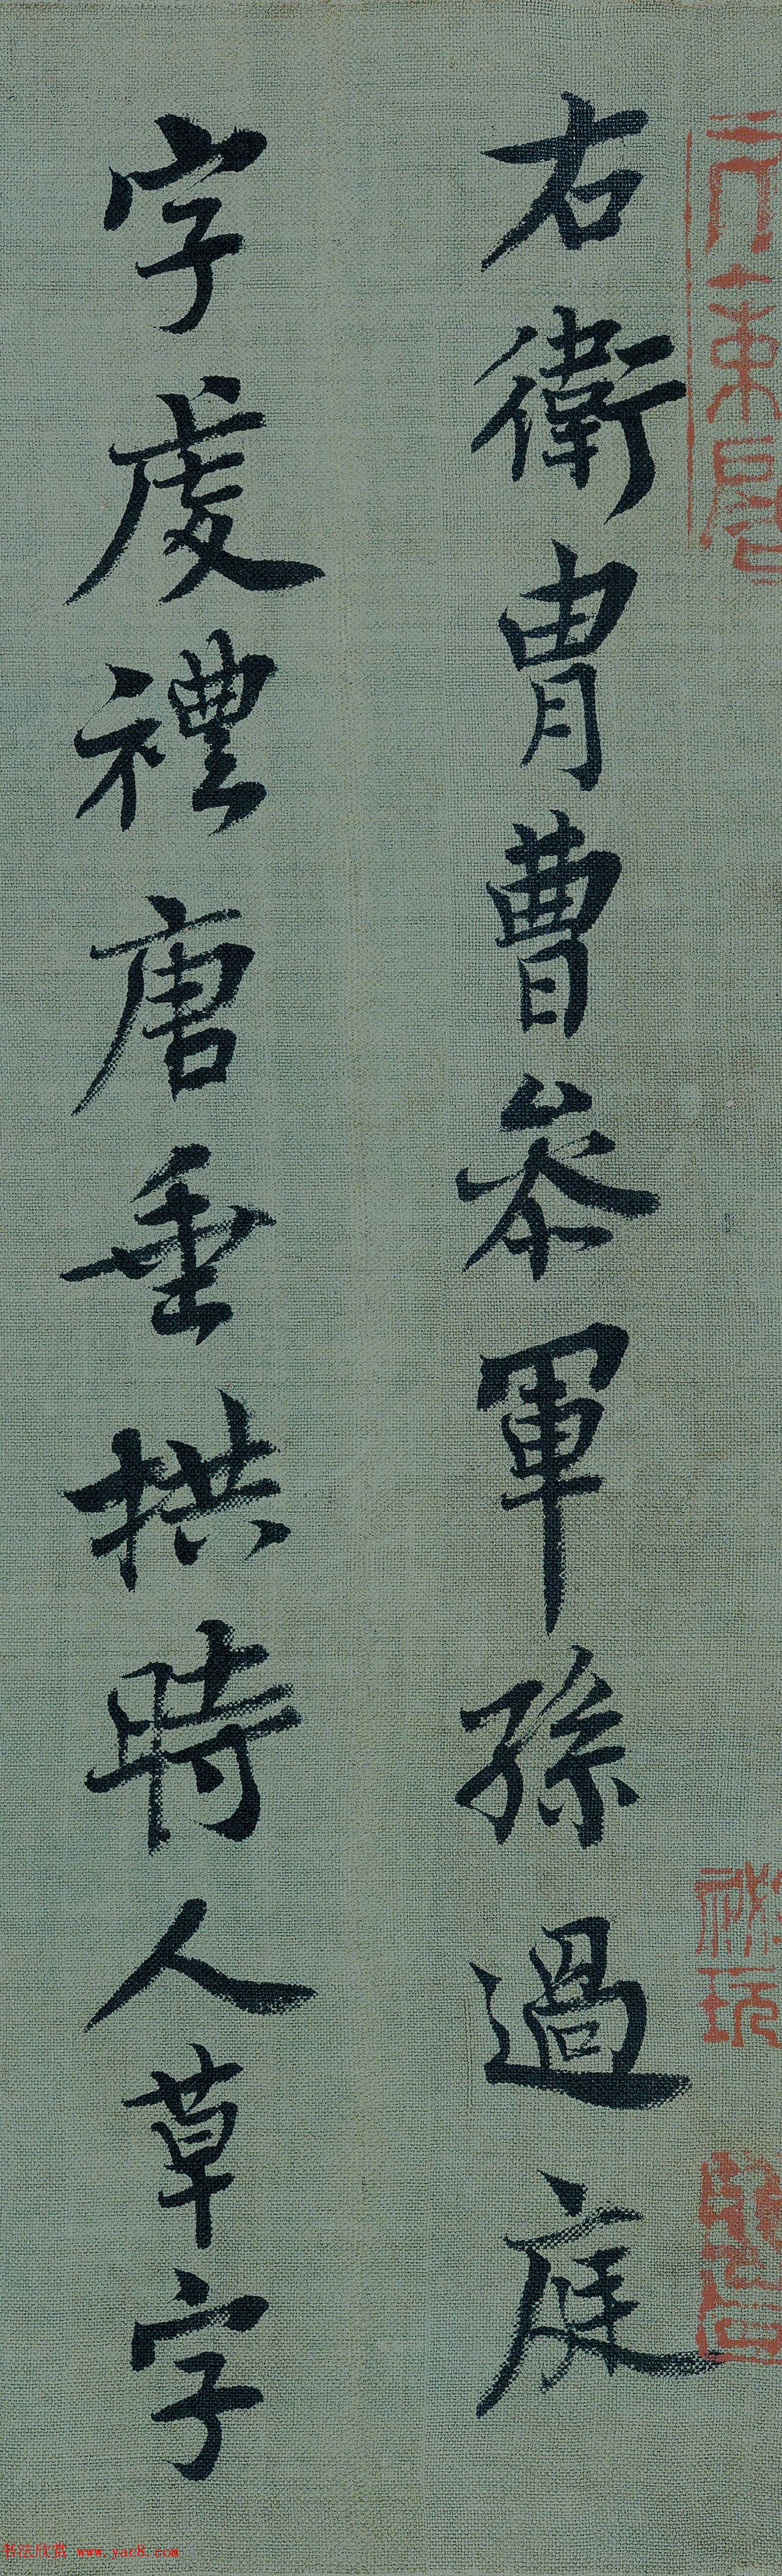 右衛胄曹叅軍孫過庭
字虔禮唐垂拱時人草字
书法欣赏 www.yac8.com